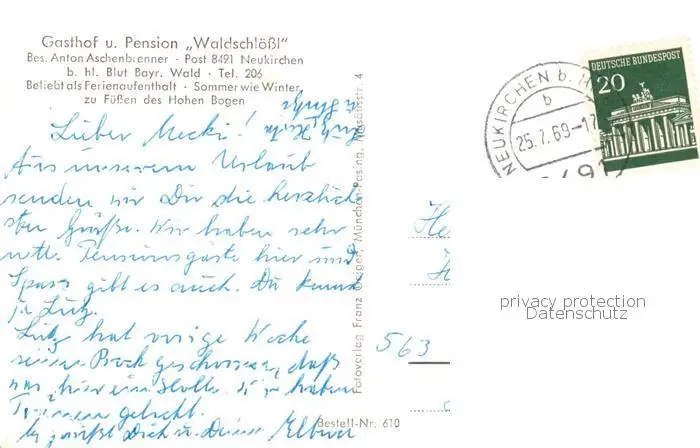 Gasthof u. Pension „Waldschlößl"
Bes. Anton Aschenbrenner · Post 8491 Neukirchen
b. hl. Blut Bayr. Wald · Tel. 206
Beliebt als Ferienaufenthalt · Sommer wie Winter,
zu Füßen des Hohen Bogen
Lieber Mecki!
Aus unserem Urlaub
senden wir Dir die herzlich
sten Grüße. Wir haben sehr
nette Pensionsgäste hier und
Spass gibt es auch. Du kennst
ja Lutz.
Lutz hat vorige Woche
seinen Bock geschossen, daß
war hier eine
haben
Tränen gelacht.
Es grüßt Dich u. Deine
Fotoverlag Franz Geiger, München-Pasing, 4
Bestell-Nr. 610
NEUKIRCHEN b. H
b
25.7.69-17
8491
DEUTSCHE BUNDESPOST
20
563
privacy protection
Datenschutz